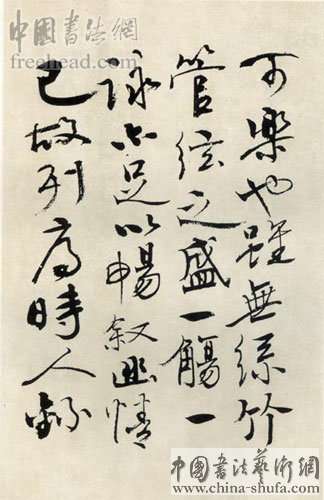 中國書法網
freehead.com
可樂也雖無絲竹
管絃之盛一觴一
詠亦足以暢敘幽情
已故列序時人錄
中國書法藝術網
www.china-shufa.com